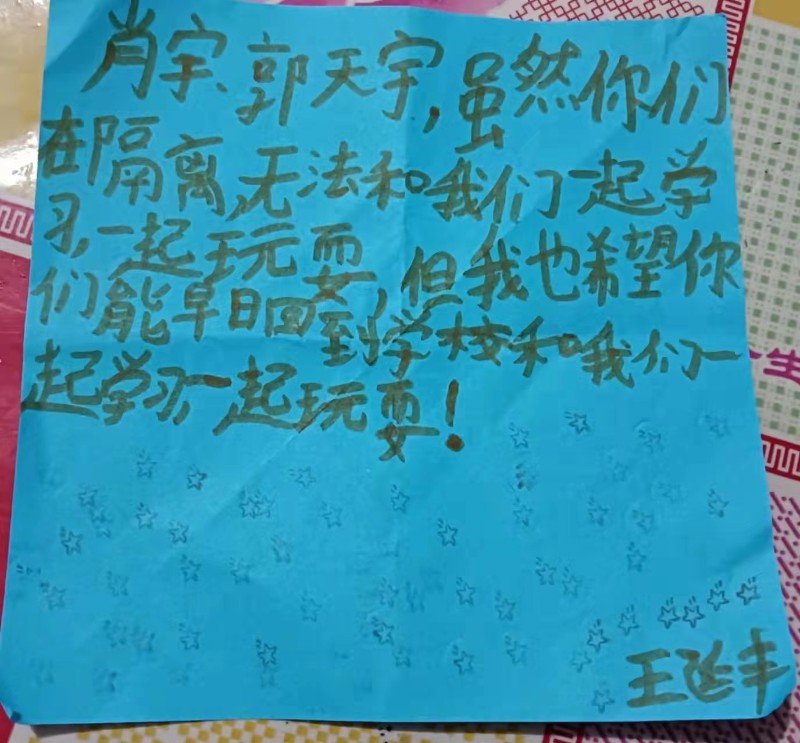 肖宇、郭天宇,虽然你们
在隔离,无法和我们一起学
习,一起玩耍,但我也希望你
们能早日回到学校和我们一
起学习,一起玩耍!
王延丰
生